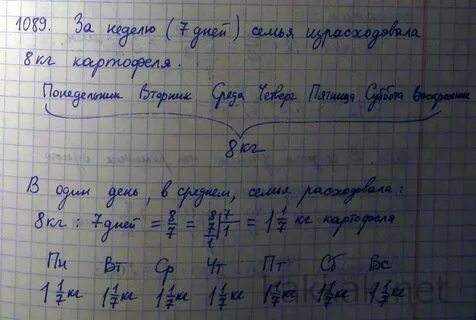 1089. За неделю (7 дней) семья израсходовала
8 кг картофеля.
Понедельник Вторник Среда Четверг Пятница Суббота Воскресенье
8 кг
В один день, в среднем, семья расходовала:
8 кг : 7 дней = 8/7 = 8|7 7|1 1 = 1 1/7 кг картофеля
Пн Вт Ср Чт Пт Сб Вс
1 1/7 кг 1 1/7 кг 1 1/7 кг 1 1/7 кг 1 1/7 кг 1 1/7 кг 1 1/7 кг